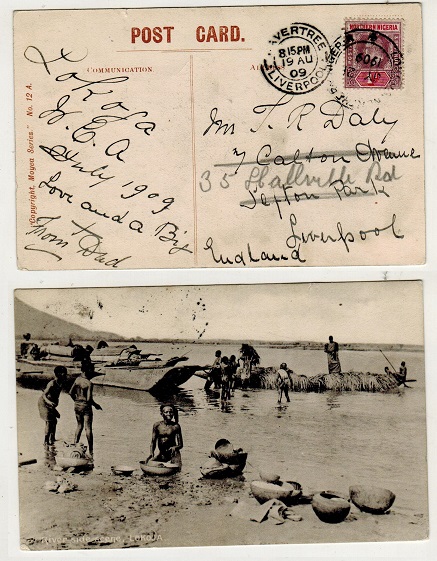 POST CARD.
COMMUNICATION
Copyright, Moyea Series." No. 12 A.
Lokoja
W.C.A
July 1909
Love and a Big
X
From Dad
WAVERTREE
8.15PM
19 AU
09
LIVERPOOL
NORTHERN NIGERIA
1909
Mrs T. R Daly
7 Calton Avenue
35 Hallville Rd
Sefton Park
Liverpool
England
River side scene, LOKOJA